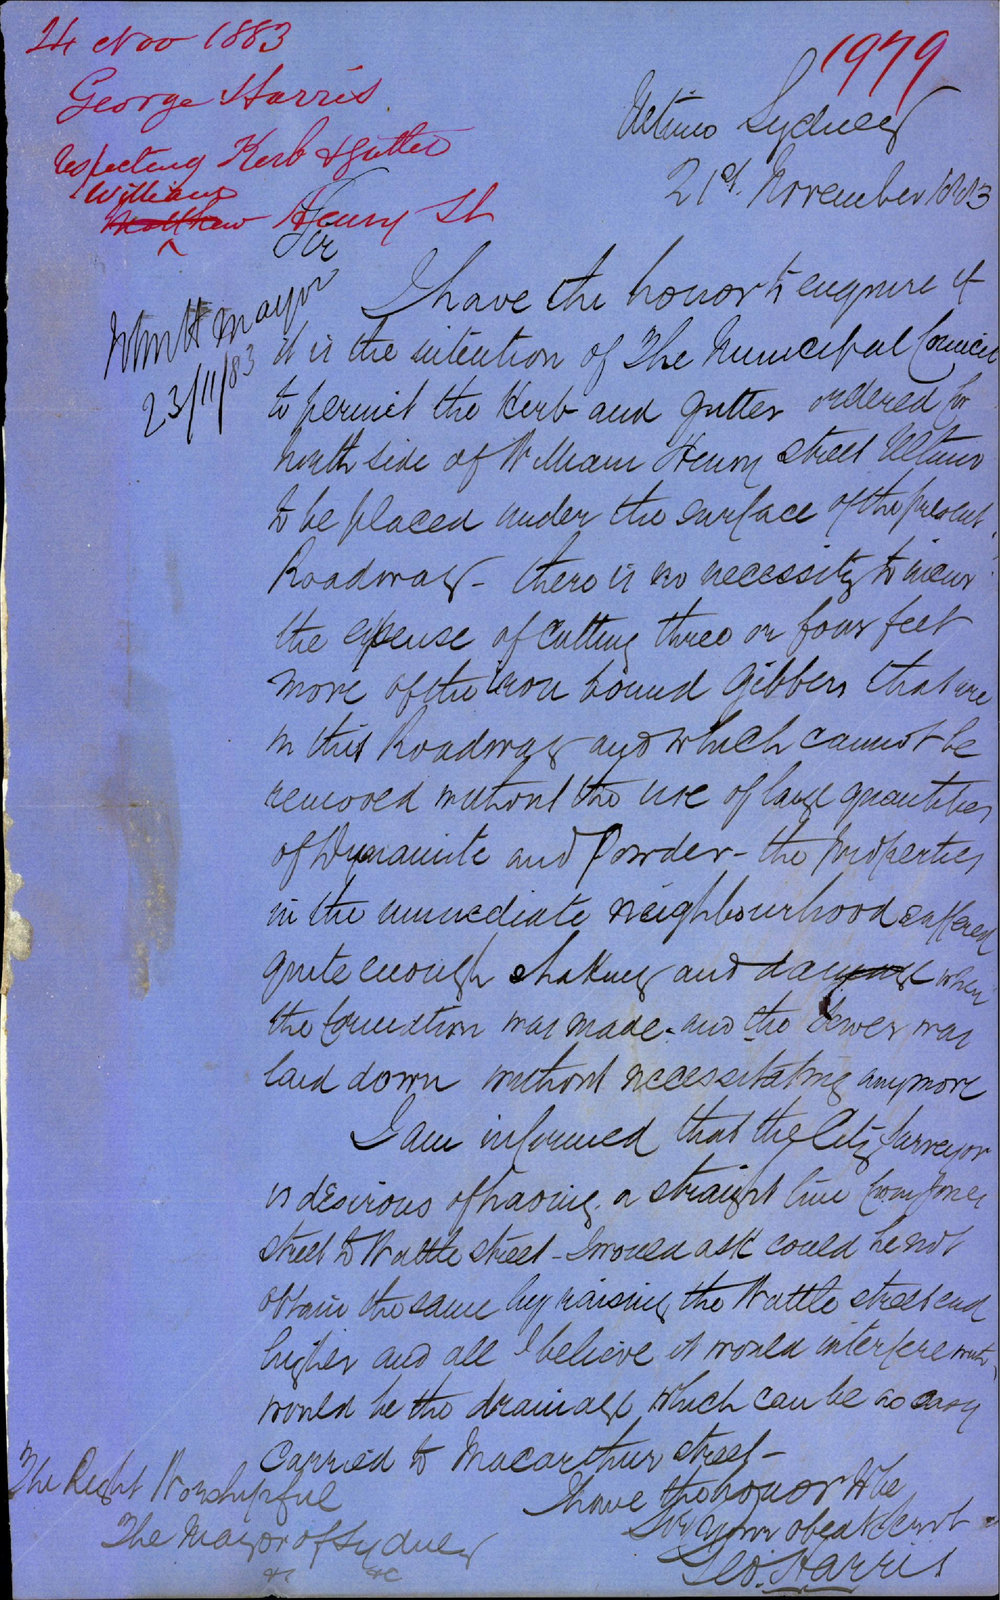 24 Nov 1883
George Harris
respecting Kerb & Gutter
William
Matthew Henry St
1979
Ultimo Sydney
21st. November 1883
Sir
John H Mayor
23/11/83
I have the honor to enquire if
it is the intention of The Municipal Council
to permit the Kerb and gutter ordered for
North side of William Henry street Ultimo
to be placed under the surface of the present
Roadway - there is no necessity to incur
the expense of Cutting three or four feet
more of the iron bound Gibbers that are
in this Roadway and which cannot be
removed without the use of large quantities
of Dynamite and Powder - the properties
in the immediate neighbourhood suffered
quite enough shaking and damage when
the Connection was made. and the Sewer was
laid down without necessitating anymore
I am informed that the City Surveyor
is desirous of having a straight line from Jones
street to Wattle street - I would ask could he not
obtain the same by raising the Wattle street end
higher and all I believe it would interfere with,
would be the drainage which can be so easy
carried to Macarthur street -
I have the honor to be
Sir your obedt Servt
Geo. Harris
The Right Worshipful
The Mayor of Sydney
&c &c